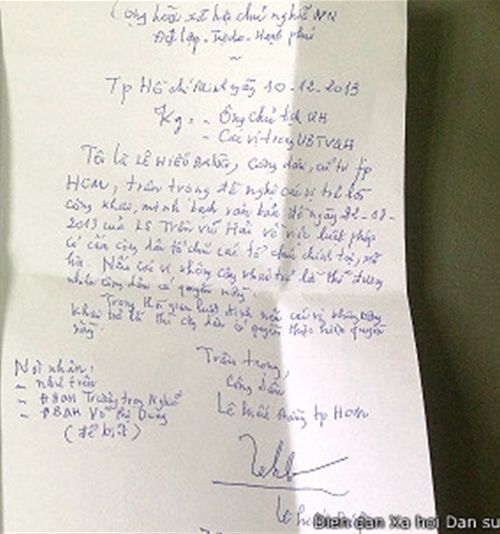 Cộng hoà xã hội chủ nghĩa VN
Độc lập - Tự do - Hạnh phúc
~
Tp Hồ Chí Minh ngày 10-12-2013
Kg: - Ông chủ tịch QH
- Các vị trong UBTVQH
Tôi là LÊ HIẾU ĐẰNG, công dân, cử tri tp
HCM, trân trọng đề nghị các vị trả lời
công khai, minh bạch văn bản đề ngày
2013 của LS Trần Vũ Hải về việc luật pháp
có cấm công dân tổ chức các tổ chức chính trị,
Nếu các vị không công khai trả lời thì đương
nhiên công dân có quyền này.
Trong thời gian luật định nếu các vị không công
khai trả lời thì công dân có quyền thực hiện quyền
này.
Trân trọng,
Công dân
Lê Hiếu Đằng tp HCM
Nơi nhận:
- như trên
- ĐBQH Trương Trọng Nghĩa
- ĐBQH Võ Thị Dung
(để biết)
Lê Hiếu Đằng
Dien dan Xa hoi Dan su